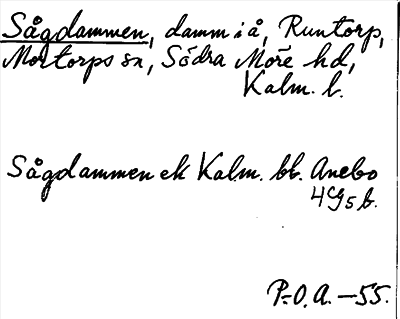 Sågdammen, damm i å, Runtorp,
Mortorps sn, Södra Möre hd,
Kalm. l.
Sågdammen ek Kalm. bl. Anebo
4G5b.
P.O.A. -55.